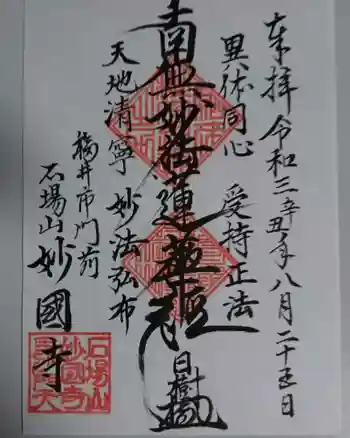 奉拝 令和三辛丑年八月二十五日
異体同心 受持正法
南無妙法蓮華経
日樹
天地清寧 妙法弘布
福井市門前
石場山 妙國寺
石場山
妙國寺